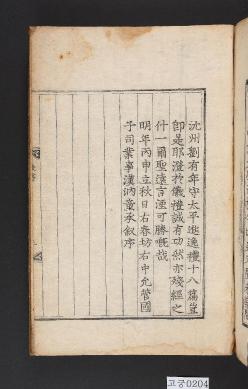 沈州劉有年守太平進逸禮十八篇豈
即是耶澄於儀禮誠有功然亦殘經之
什一爾聖遠言湮可勝慨哉
明年丙申立秋日右春坊右中允管國
子司業事漢汭童承叙序
고궁0204